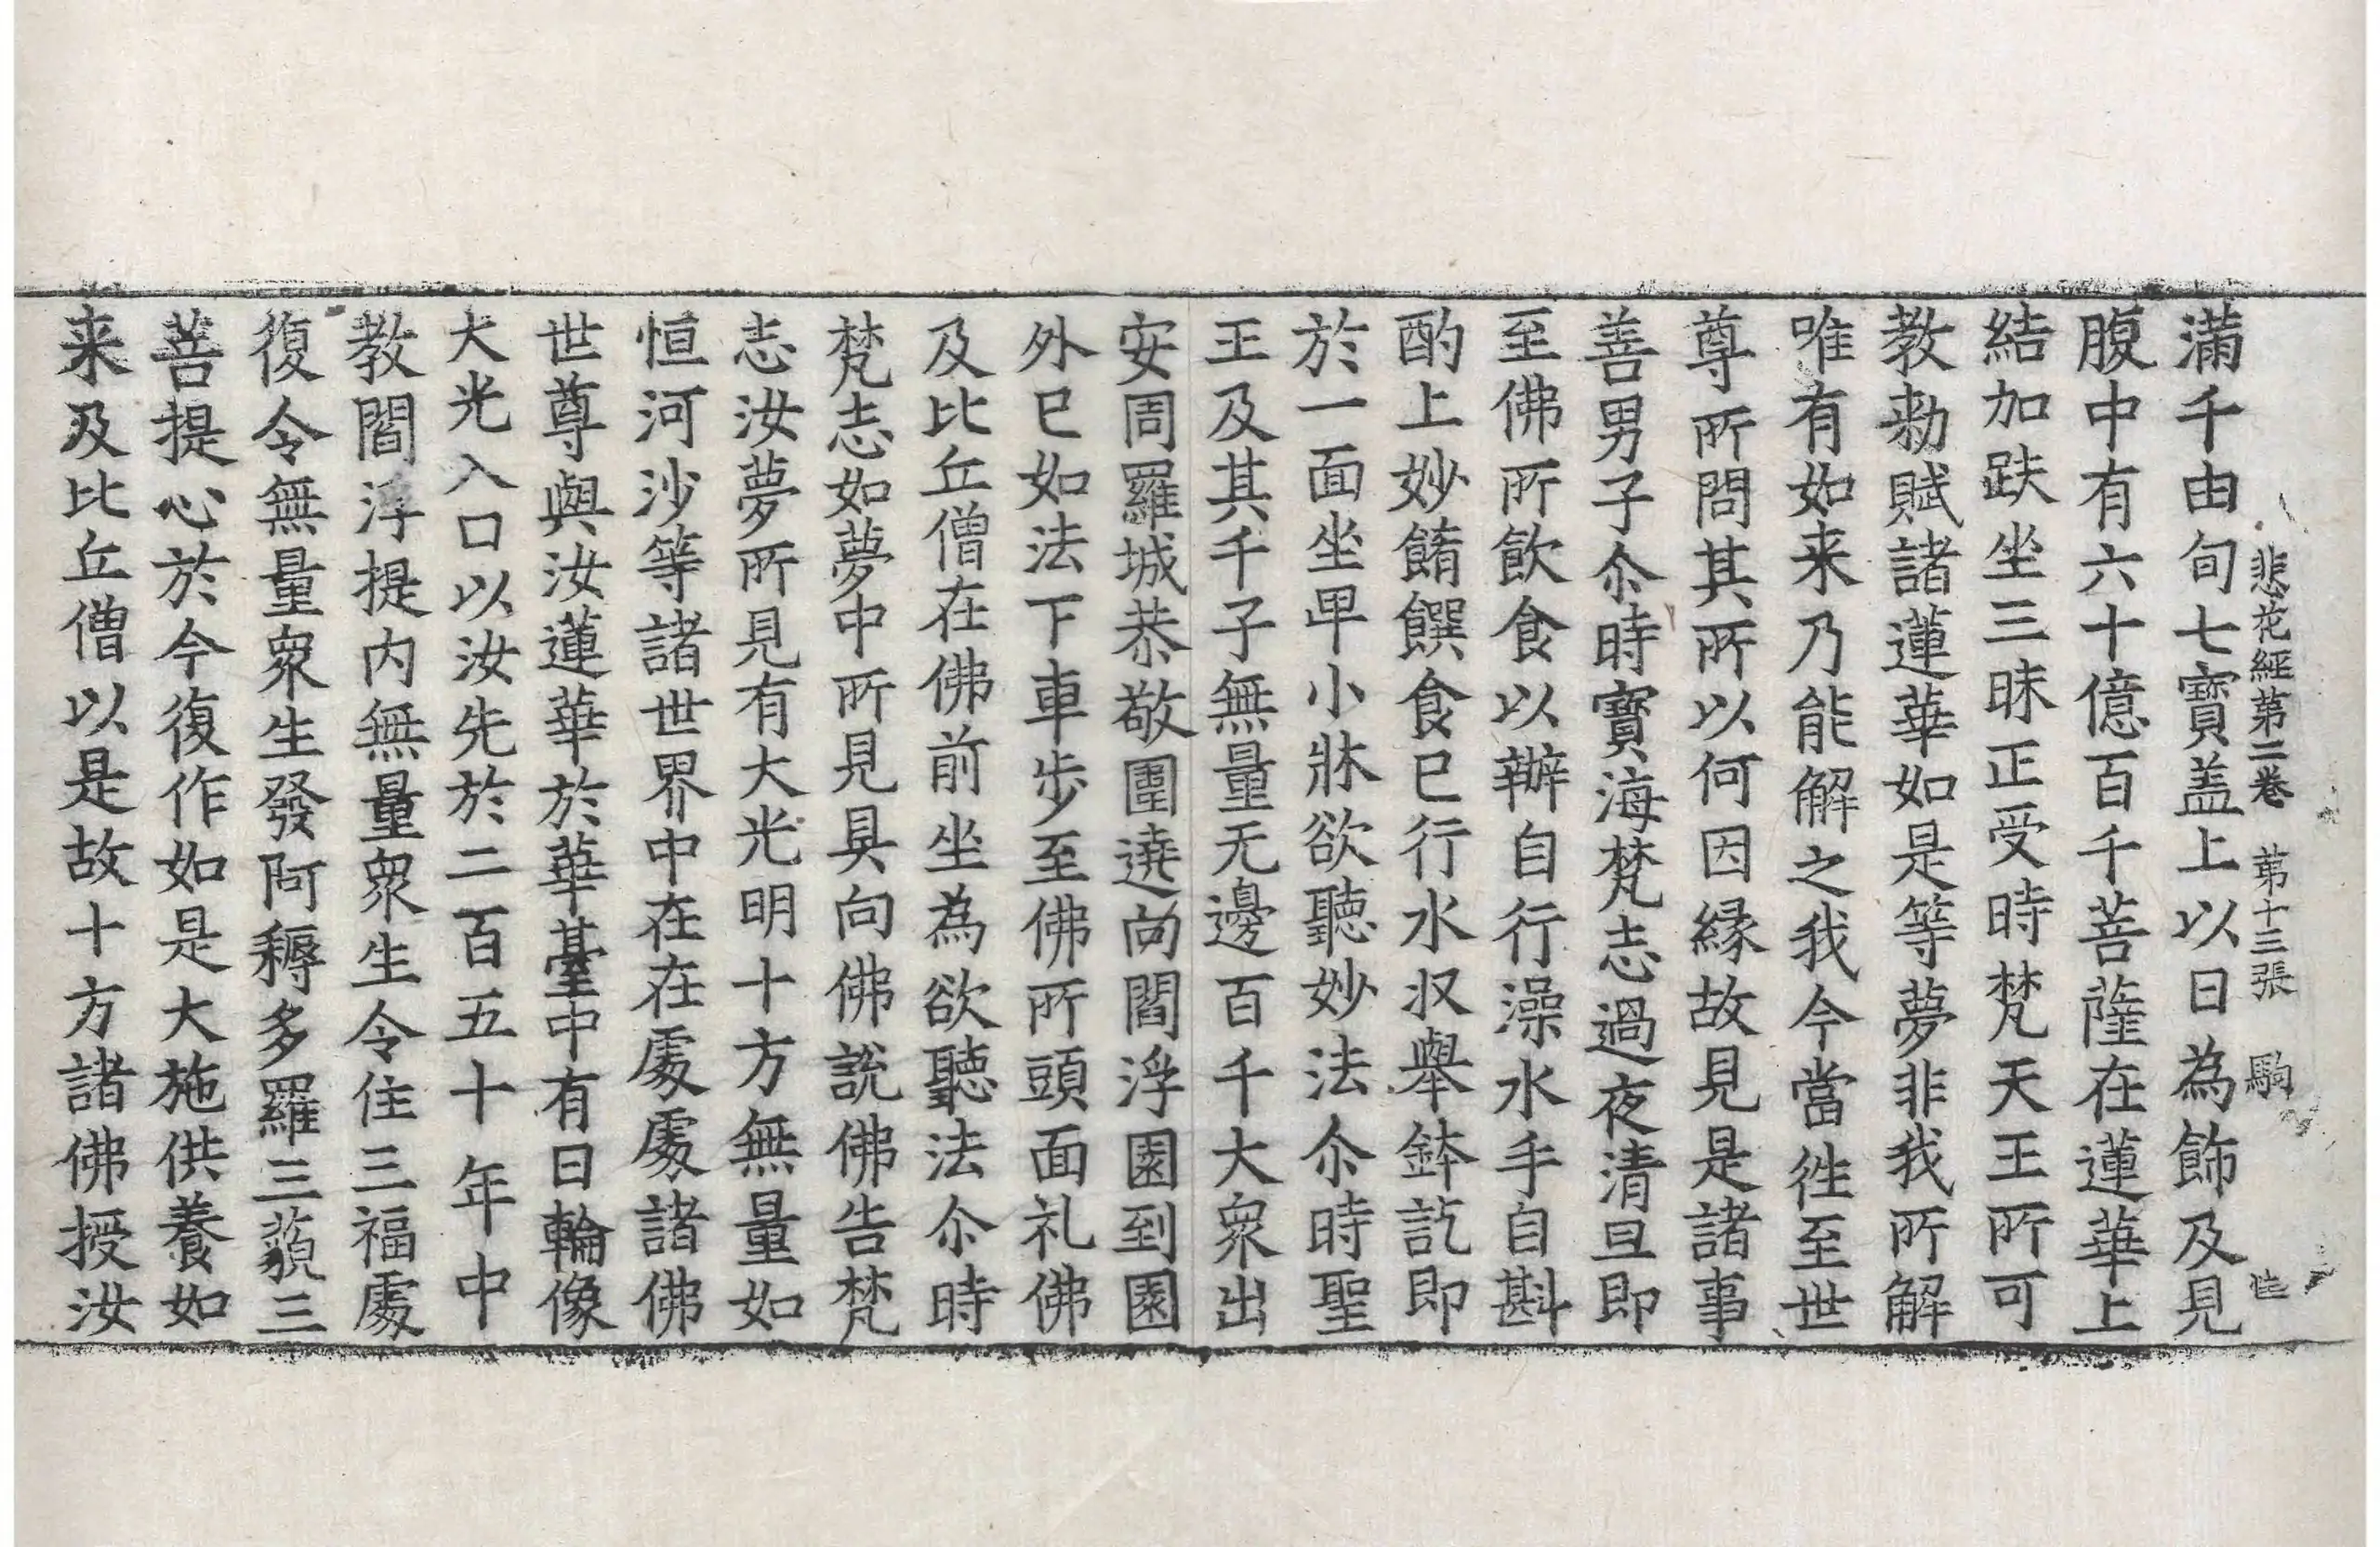 悲花經第二卷 第十三張 駒
滿千由旬七寶盖上以日為飾及見
腹中有六十億百千菩薩在蓮華上
結加趺坐三昧正受時梵天王所可
教勑賦諸蓮華如是等夢非我所解
唯有如来乃能解之我今當徃至世
尊所問其所以何因緣故見是諸事
善男子尒時寶海梵志過夜清旦即
至佛所飲食以辦自行澡水手自斟
酌上妙餚饌食已行水収舉鉢訖即
於一面坐卑小牀欲聽妙法尒時聖
王及其千子無量无邊百千大衆出
安周羅城恭敬圍遶向閻浮園到園
外已如法下車步至佛所頭面礼佛
及比丘僧在佛前坐為欲聽法尒時
梵志如夢中所見具向佛說佛告梵
志汝夢所見有大光明十方無量如
恒河沙等諸世界中在在處處諸佛
世尊與汝蓮華於華臺中有日輪像
大光入口以汝先於二百五十年中
教閻浮提内無量衆生令住三福處
復令無量衆生發阿耨多羅三藐三
菩提心於今復作如是大施供養如
来及比丘僧以是故十方諸佛授汝